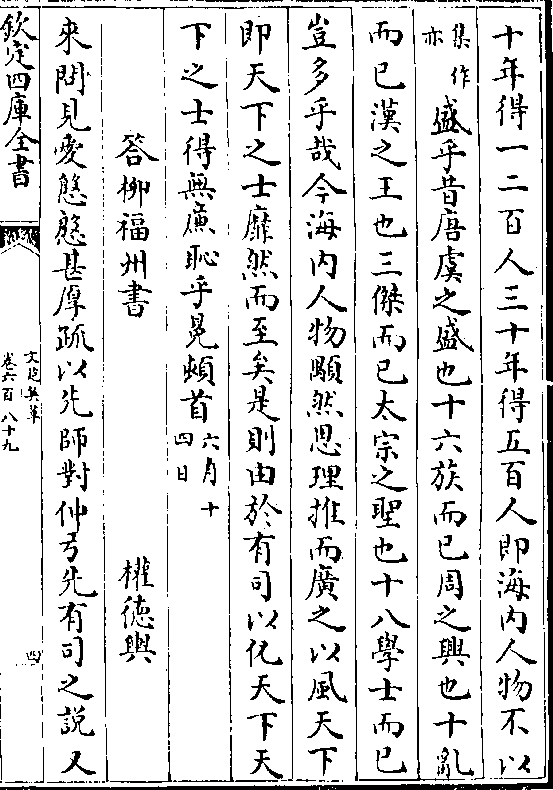 十年得一二百人三十年得五百人即海内人物不以
集作亦盛乎昔唐虞之盛也十六族而已周之興也十亂
而已漢之王也三傑而已太宗之聖也十八學士而已
豈多乎哉今海内人物顒然思理推而廣之以風天下
即天下之士靡然而至矣是則由於有司以化天下天
下之士得無㢘恥乎冕頓首六月十四日
答柳福州書　權徳輿
來問見愛慇慇甚厚疏以先師對仲弓先有司之説又
欽定四庫全書
文苑英華
卷六百八十九
四